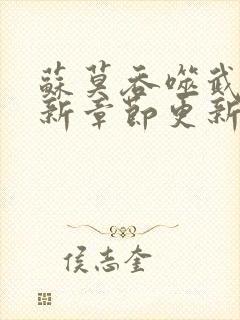 蘇莫吞噬武
新章節更新
侯志奎